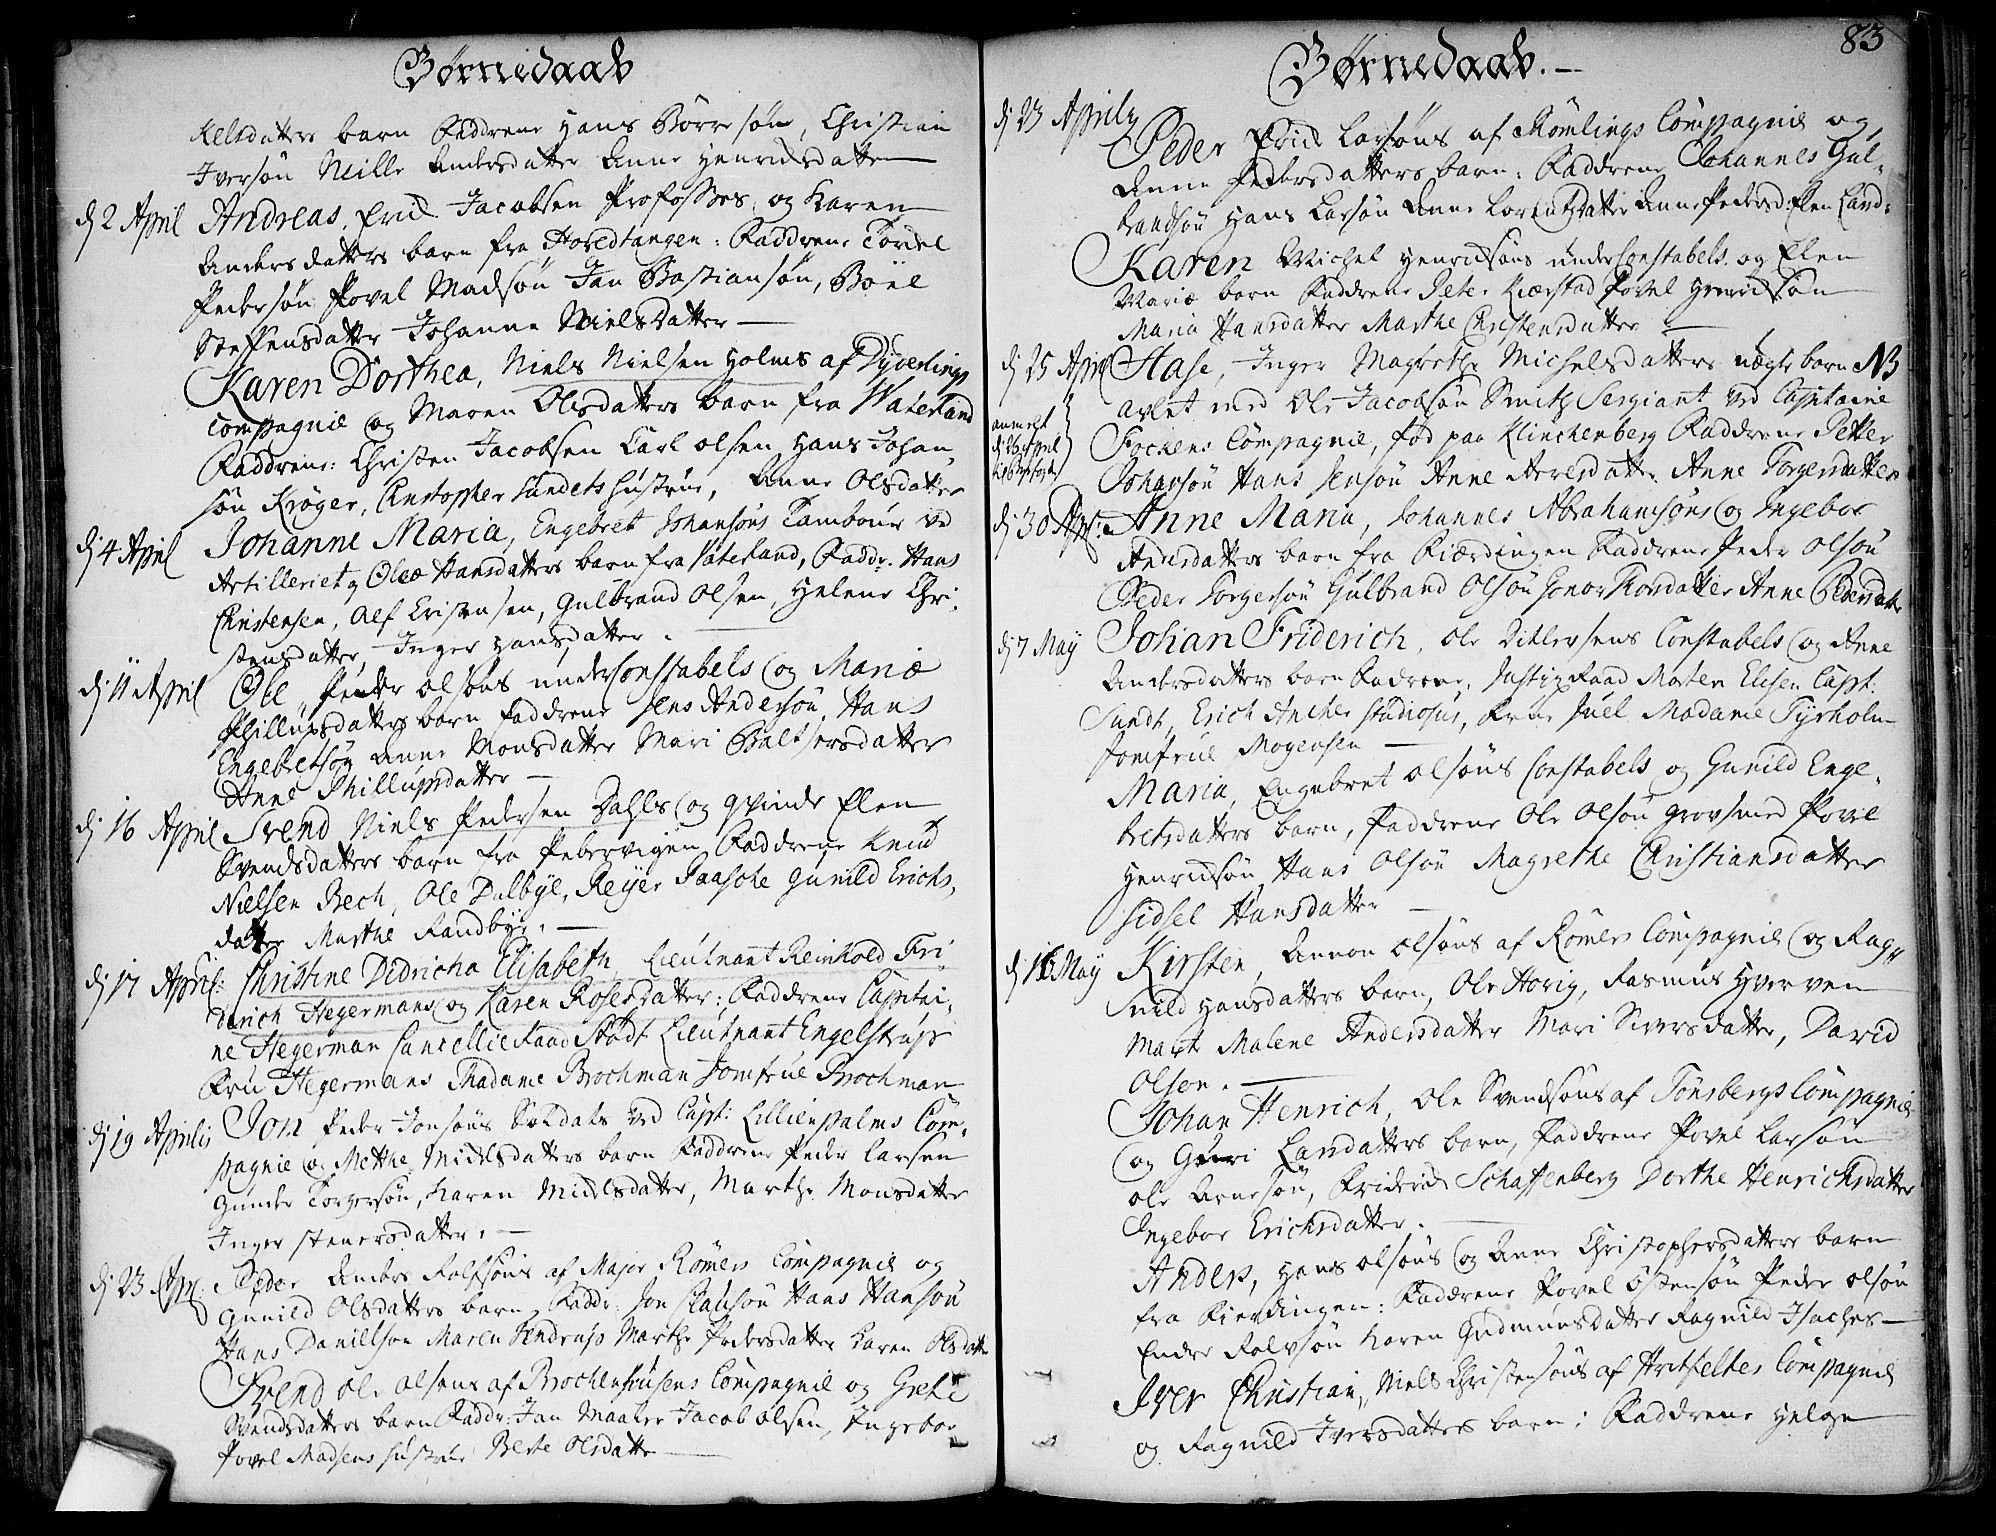 Børnedaab
Kelsdatters barn Faddrene Hans Börresön, Christian
Iversön Neille Andersdatter Anne Henrichsdatter
dj 2 April Andreas, Erich Jacobsen Profosses, og Karen
Andersdatters barn fra Hovedtangen: Faddrene Tordel
Pedersön Povel Madsön Jan Bastiansön, Böel
Steffensdatter Johanne Nielsdatter
Karen Dorthea, Niels Nielsen Holms af Dyverlings
Compagnie og Maren Olsdatters barn fra Waterland
Faddrene: Christen Jacobsen Carl Olsen Hans Johan-
sön Kröger, Christopher Sundets Hustrue, Anne Olsdatter
dj 4 April Johanne Maria, Engebret Johansöns Tambour ved
Artilleriet og Oleæ Hansdatters barn fra Vaterland, Faddr. Hans
Christensen, Alf Cristensen, Gulbrand Olsen, Helene Chri-
stensdatter, Inger Hansdatter.
dj 11 April Ole, Peder Olsöns underConstabels og Mariæ
Phillupsdatters barn faddrene Jens Andersön, Hans
Engebretsön Anne Monsdatter Mari Baltzersdatter
Anne Phillupsdatter
dj 16 April Svend Niels Pedersen Dahls og Qvinde Elen
Svendsdatters barn fra Pebervigen Faddrene Knud
Nielsen Bech, Ole Dalbye, Reyer Paasche Gunild Erichs-
datter Marthe Randbye.
dj 17 April: Christine Didricha Elisabeth, Lieutnant Reinhold Fri-
derich Hegermans og Karen Rosesdatter: Faddrene Capitai-
ne Hegerman CancellieRaad Stödt Lieutnant Engelstrup
Fru Hegermans Madame Brochman Jomfrue Brochman
dj 19 Aprilis Jon Peder Jonsöns Soldats ved Capt: Lillienpalms Com-
pagnie og Mette Nielsdatters barn Faddrene Peder Larsen
Gunder Torgersön, Karen Nielsdatter, Marthe Monsdatter
Inger Stenersdatter.
dj 23 Apr. Peder Anders Rolfsöns af Major Römers Compagnie og
Gunild Olsdatters barn Faddr: Jon Clausön Hans Hansön
Hans Daniellson Maren Tendrup Marthe Pedersdatter Karen Olsdatter
Svend Ole Olsens af Brochenhusens Compagnie og Grete
Svendsdatters barn Faddr: Jan Maaler Jacob Olsen, Ingebor
Povel Madsens Hustrue Berte Olsdatter
Børnedaab.
83
dj 23 Aprily Peder Erich Larsöns af Römlings Compagnie og
Anne Pedersdatters barn: Faddrene Johannes Gul-
brandsön Hans Larsön Anne Lorentzdatter Anne Pedersd: Elen Land:
Karen Michel Henrichsöns underConstabels og Elen
Mariæ barn Faddrene Peter Kierstad Povel Henrichsön
Maria Hansdatter Marthe Christensdatter
dj 25 April Hase, Inger Magrethe Michelsdatters uægte barn NB
avlet med Ole Jacobsön Smith Sergiant ved Capitaine
anmelt
dj 26 April
Fochens Compagnie, fød paa Klinchenberg Faddrene Petter
Johansön Hans Jensön Anne Arresdatter Anne Torgersdatter
dj 30 Apr: Anne Maria, Johannes Abrahamsöns og Ingebor
Andersdatters barn fra Pierdingen Faddrene Peder Olsön
Peder Torgersön Gulbrand Olsön Gonor Thordatter Anne Pedersdatter
dj 7 May Johan Friderich, Ole Ditlevsens Constabels og Anne
Andersdatters barn Fadrene, JustizRaad Morten Elisen Capt:
Sundt, Erich Ancher Studiosus, Frue Juel Madame Tyrholm
Jomfrue Mogensen
Maria, Engebret Olsöns Constabels og Gunild Enge-
bretsdatters barn, Faddrene Ole Olsön Grovsmed Povel
Henrichsön, Hans Olsön Magrethe Christiansdatter
Sidsel Hansdatter
dj 16 May Kirsten, Annon Olsöns af Römers Compagnie og Rag-
nild Hansdatters barn, Ole Hovig, Rasmus Hverven
Mart Malene Andersdatter Mari Siversdatter, David
Olsen.
Johan Henrich, Ole Svendsöns af Tönsbergs Compagnie
og Guri Larsdatters barn, Faddrene Povel Larsön
Ole Arnesön, Friderich Schaffenberg Dorthe Henrichsdatter
Ingebor Erichsdatter.
Anders, Hans Olsöns og Anne Christophersdatters barn
fra Pierdingen: Faddrene Povel Östensön Peder Olsön
Endre Rolvsön Karen Gudmunsdatter Ragnild Isaches
Iver Christian, Niels Christensöns af Hvitfeltes Compagnie
og Ragnild Iversdatters barn: Faddrene Helge